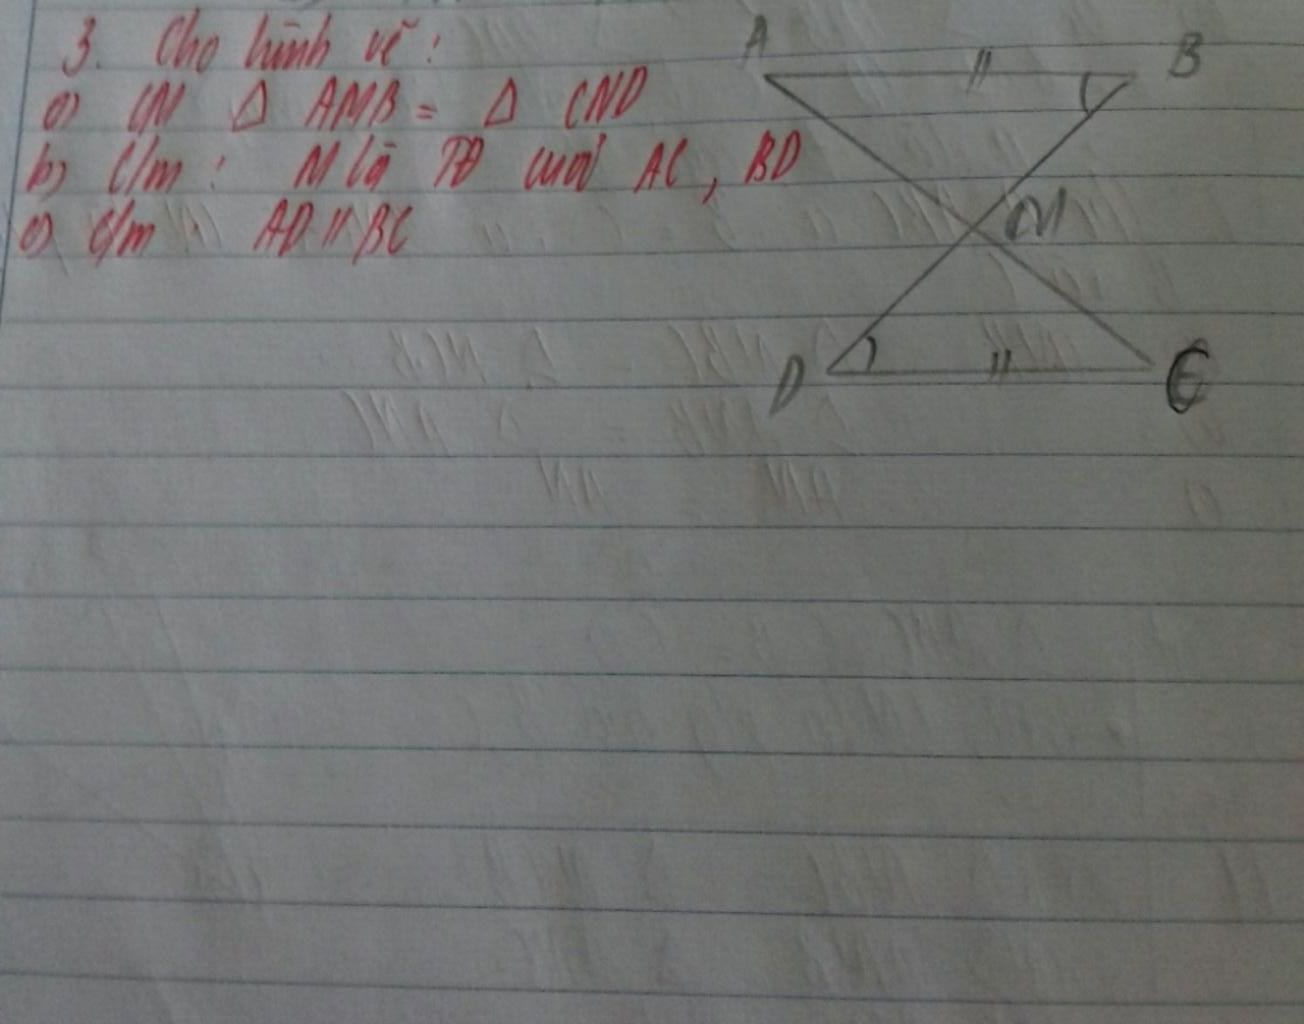 3. Cho hình vẽ:
a) CM Δ AMB = Δ CMD
b) C/m: M là TĐ của AC, BD
c) C/m: AD // BC
A
B
M
D
C